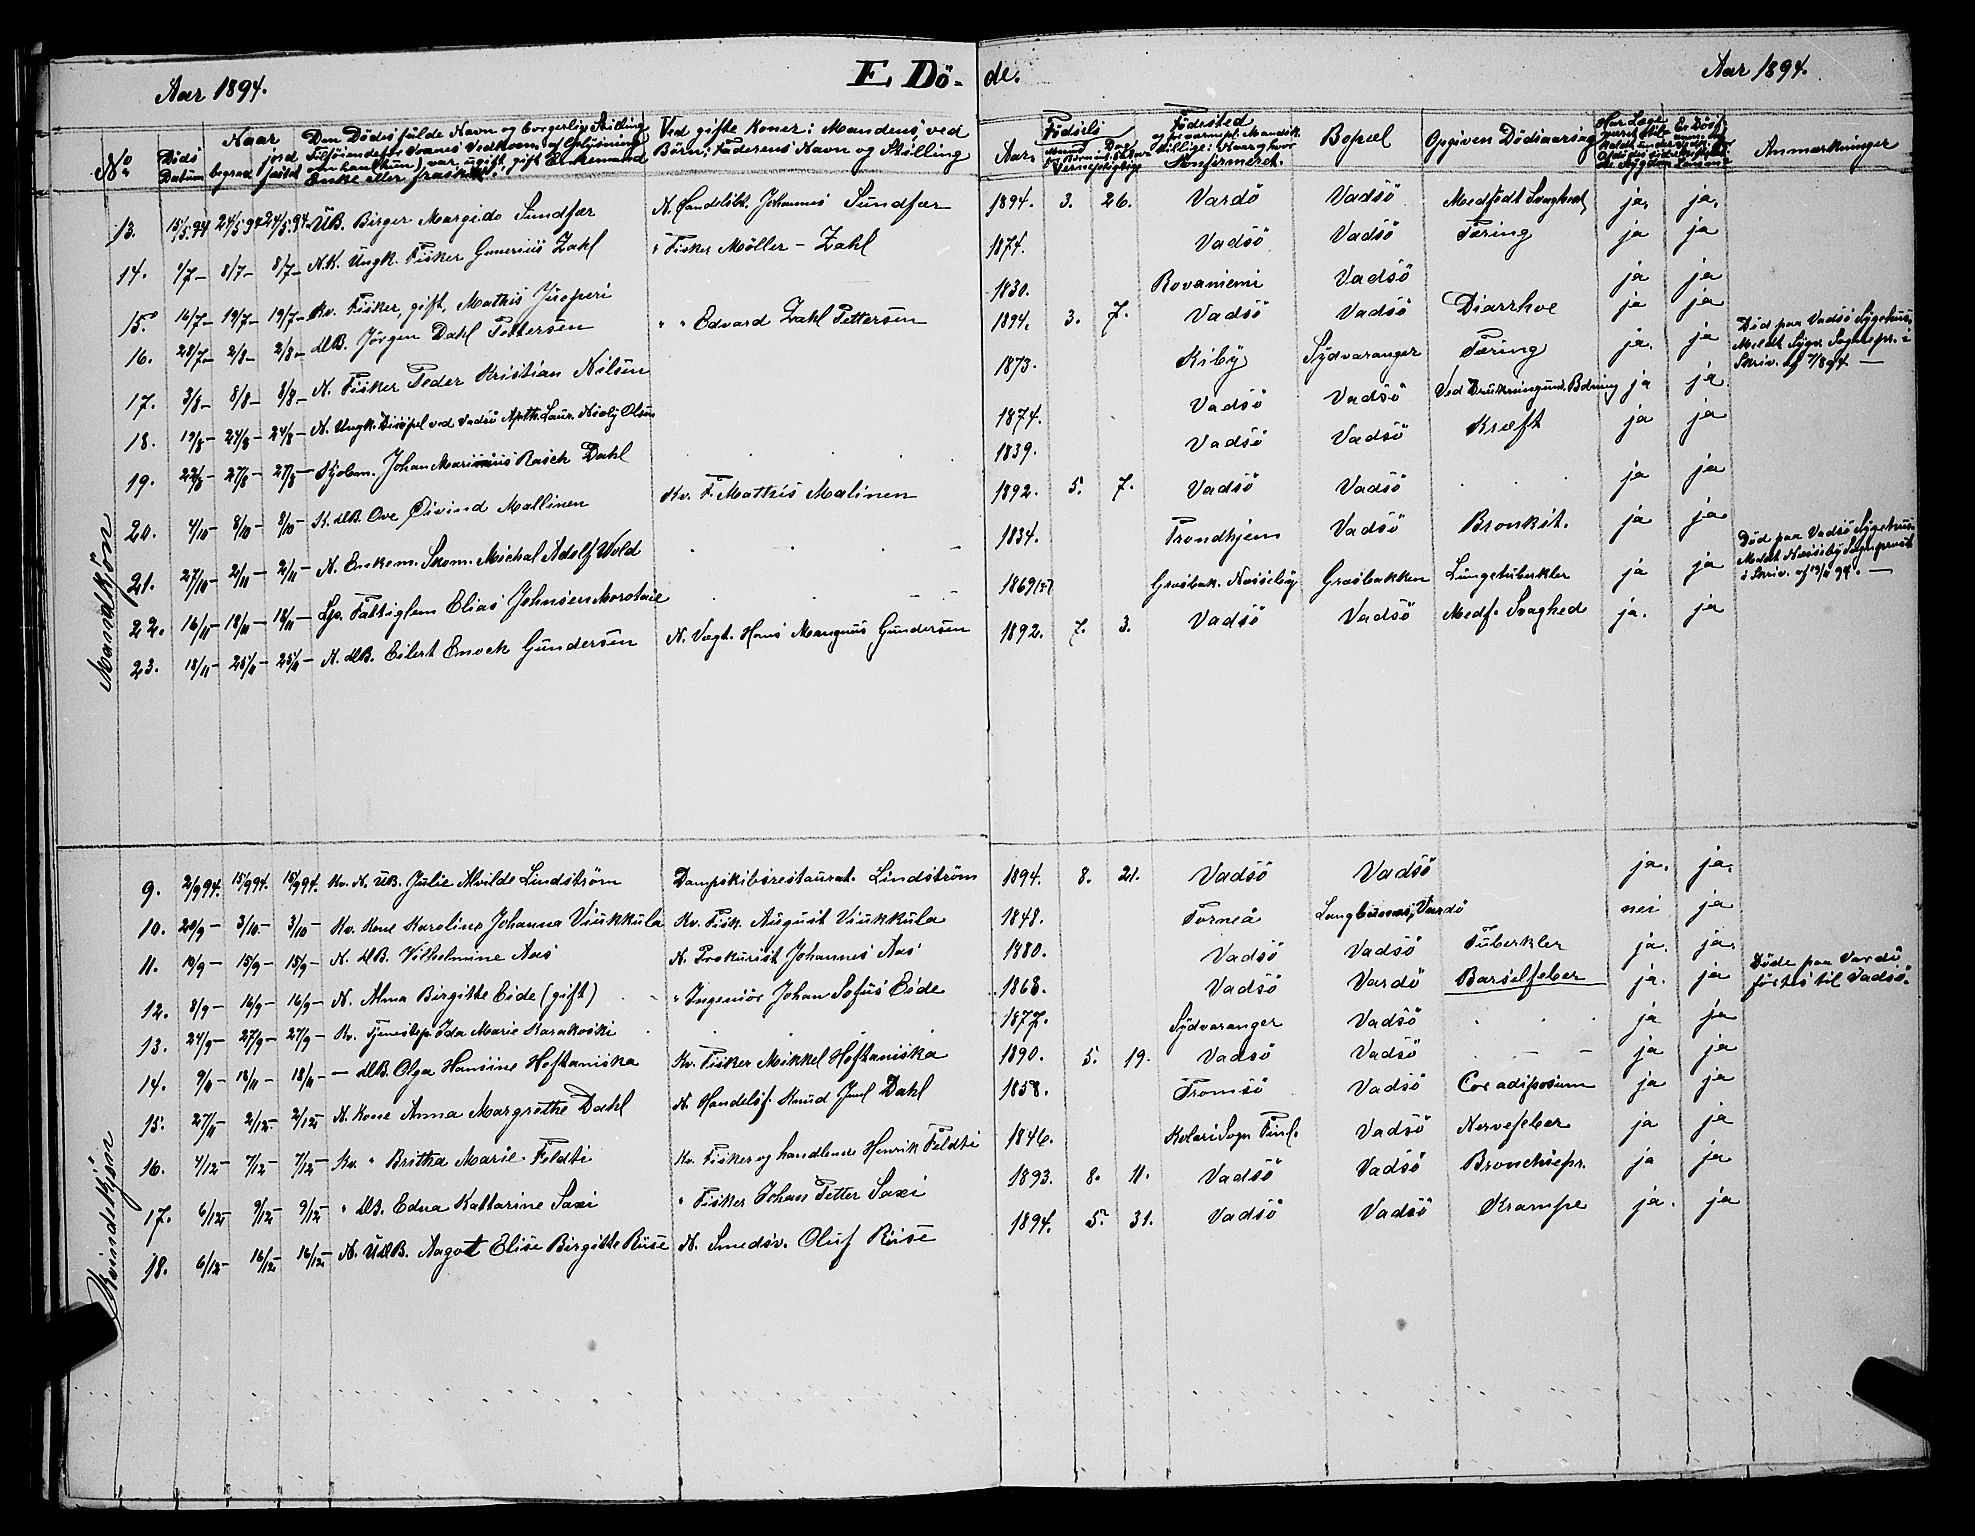 Aar 1894.
E Dö- de.
Aar 1894.
No
Döds Datum
Naar
begravet
jord fæstet
Den Dödes fulde Navn og borgerlige Stilling
Enke eller fraskilt.
Ved gifte Koner: Mandens, ved Börn: Faderens Navn og Stilling
Födsels
Aar.
Födested
Konfirmeret.
Bopæl
Opgiven Dödsaarsag
Anmærkninger
Mandkjön
13. 15/5 94 24/5 94 24/5 94 UB. Birger Margido Sundfær N. Handelsbt. Johannes Sundfær 1894. 3. 26. Vardö Vadsö Medfödt Svaghed ja. ja.
14. 1/7 – 8/7 – 8/7 – N.K. Ungk. Fisker Gunerius Zahl " Fisker Möller – Zahl 1874. Vadsö Vadsö Tæring ja ja
15. 16/7 – 19/7 – 19/7 – Kv. Fisker, gift, Mathis 1830. Rovaniemi Vadsö ja ja
16. 28/7 – 2/8 – 2/8 – UB. Jörgen Dahl Pettersen " " Edvard Zahl Pettersen 1894. 3. 7. Vadsö Vadsö Diarrhoe ja ja
17. 3/8 – 8/8 – 8/8 – N. Fisker Peder Kristian Nilsen 1873. Kiby Sydvaranger Tæring ja. ja Död paa Vadsö Sygehus. Meldt Sydv. Sognepr. i Skriv. af 7/8 94. —
18. 19/8 – 24/8 – 24/8 – N. Ungk. Discipel ved Vadsö Apoth. Laur. Olsen 1874. Vadsö Vadsö Ved Drukning und. Badning ja ja
19. 22/8 – 27/8 – 27/8 – Johan Marinius Rasch Dahl 1839. Vadsö Vadsö Kræft ja ja
20. 4/10 – 8/10 – 8/10 – K. UB. Ove Öivind Mallinen Kv. F. Mathis Malinen 1892. 5. 7. Vadsö Vadsö ja ja
21. 27/10 – 2/11 – 2/11 – N. Enkem. Skom. Michal Adolf Wold 1834. Trondhjem Vadsö Bronkit. ja ja
22. 16/11 – 18/11 – 18/11 – Lp. Fattiglem Elias Johnsen 1869 Græsbak. Næsseby Græsbakken Lungetuberkler ja ja Död paa Vadsö Sygehus. Meldt Næsseby Sogneprest i Skriv. af 19/11 94. —
23. 18/11 – 25/11 – 25/11 – N. UB. Eilert Enoch Gundersen N. Vægt. Hans Mangnus Gundersen 1892. 7. 3. Vadsö Vadsö Medf. Svaghed ja. ja
Kvindekjön
9. 2/9 94. 15/9 94. 15/9 94. Kv. N. UB. Julie Alvilde Lindström Dampskibsrestaurat. Lindström 1894. 8. 21. Vadsö Vadsö ja. ja.
10. 20/9 – 3/10 – 3/10 – Kv. Kone Karoline Johanna Viukkula Kv. Fisk. August Viukkula 1848. Torneå Langbunæs, Vardö nei ja
11. 10/9 – 15/9 – 15/9 – N. UB. Vilhelmine Aas N. Prokurist Johannes Aas 1880. Vadsö Vadsö Tuberkler ja. ja.
12. 8/9 – 16/9 – 16/9 – N. Alma Birgitte Eide (gift) " Ingeniör Johan Sofus Eide 1868. Vadsö Vardö Barselfeber ja. ja Döde paa Vardö förtes til Vadsö.
13. 24/9 – 27/9 – 27/9 – Kv. Tjenestep. Ida Marie Karakoski 1877. Sydvaranger Vadsö ja ja
14. 9/11 – 18/11 – 18/11 – — UB. Olga Hansine Hoftaniska Kv. Fisker Mikkel Hoftaniska 1890. 5. 19. Vadsö Vadsö ja ja
15. 27/11 – 2/12 – 2/12 – N. Kone Anna Margrethe Dahl N. Handelsf. Knud Juul Dahl 1858. Tromsö Vadsö Cor adiposum ja ja
16. 4/12 – 7/12 – 7/12 – Kv. " Britha Marie Feldti Kv. Fisker og handlende Henrik Feldti 1846. Kolari Sogn Finl. Vadsö Nervefeber ja ja
17. 6/12 – 9/12 – 9/12 – " UB. Edna Kattarine Saxi " Fisker Johan Petter Saxi 1893. 8. 11. Vadsö Vadsö Bronchiepn. ja ja
18. 6/12 – 16/12 – 16/12 – N. UUB. Aagot Elise Birgitte Riise N. Smedsv. Oluf Riise 1894. 5. 31. Vadsö Vadsö Krampe ja. ja